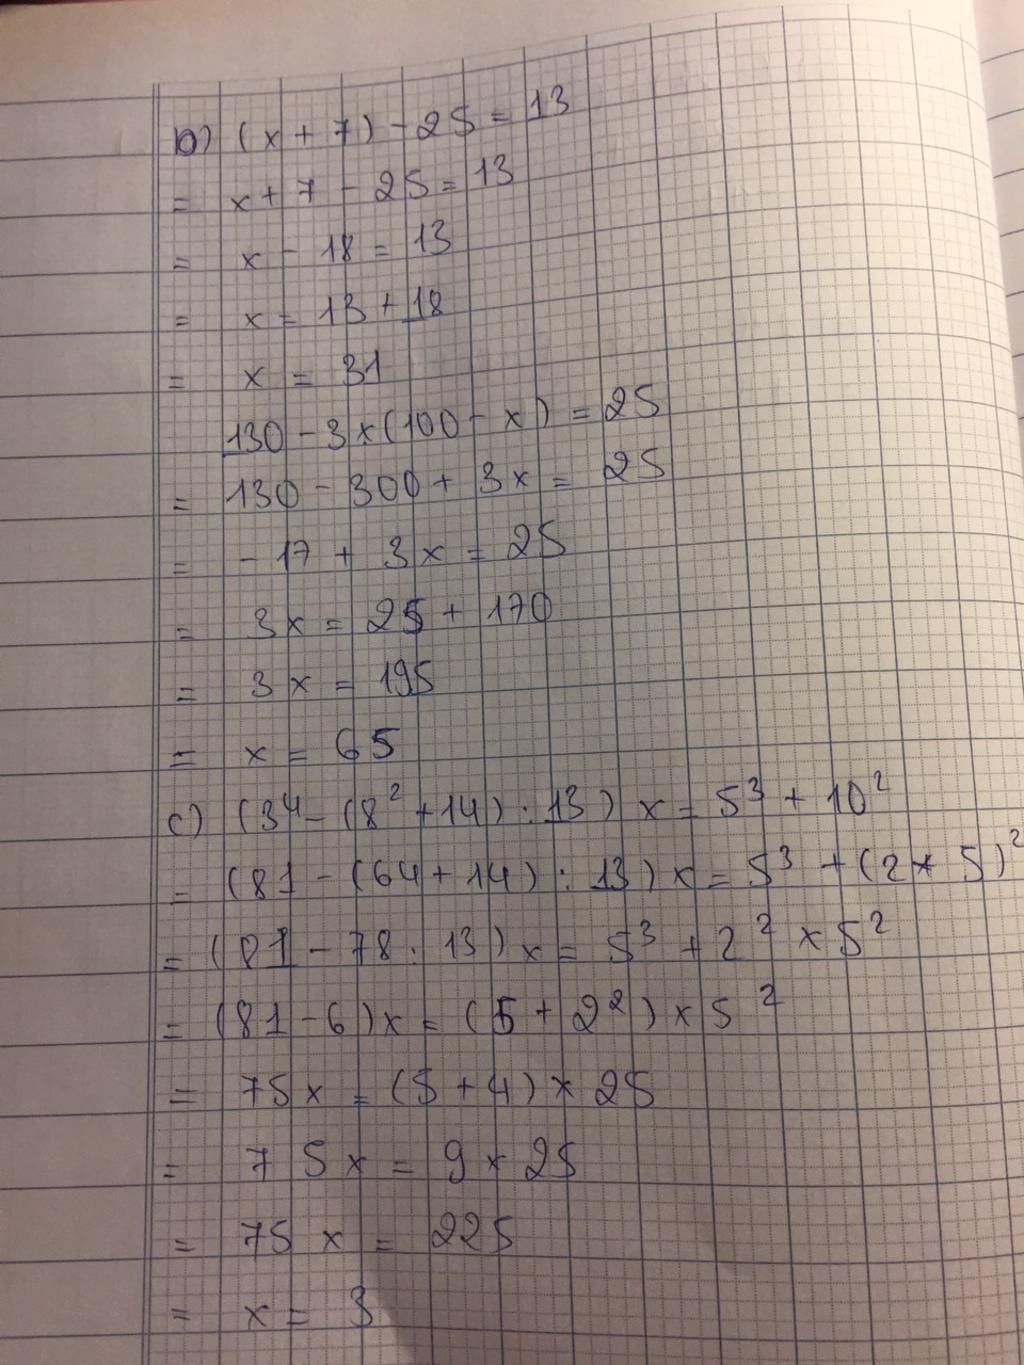 b) (x + 7) - 25 = 13
= x + 7 - 25 = 13
= x - 18 = 13
= x = 13 + 18
= x = 31
130 - 3 x (100 - x) = 25
= 130 - 300 + 3x = 25
= - 17 + 3x = 25
= 3x = 25 + 170
= 3x = 195
= x = 65
c) (3⁴ - (8² + 14) : 13) x = 5³ + 10²
= (81 - (64 + 14) : 13) x = 5³ + (2 * 5)²
= (81 - 78 : 13) x = 5³ + 2² x 5²
= (81 - 6) x = (5 + 2²) x 5²
= 75 x = (5 + 4) x 25
= 75 x = 9 x 25
= 75 x = 225
= x = 3